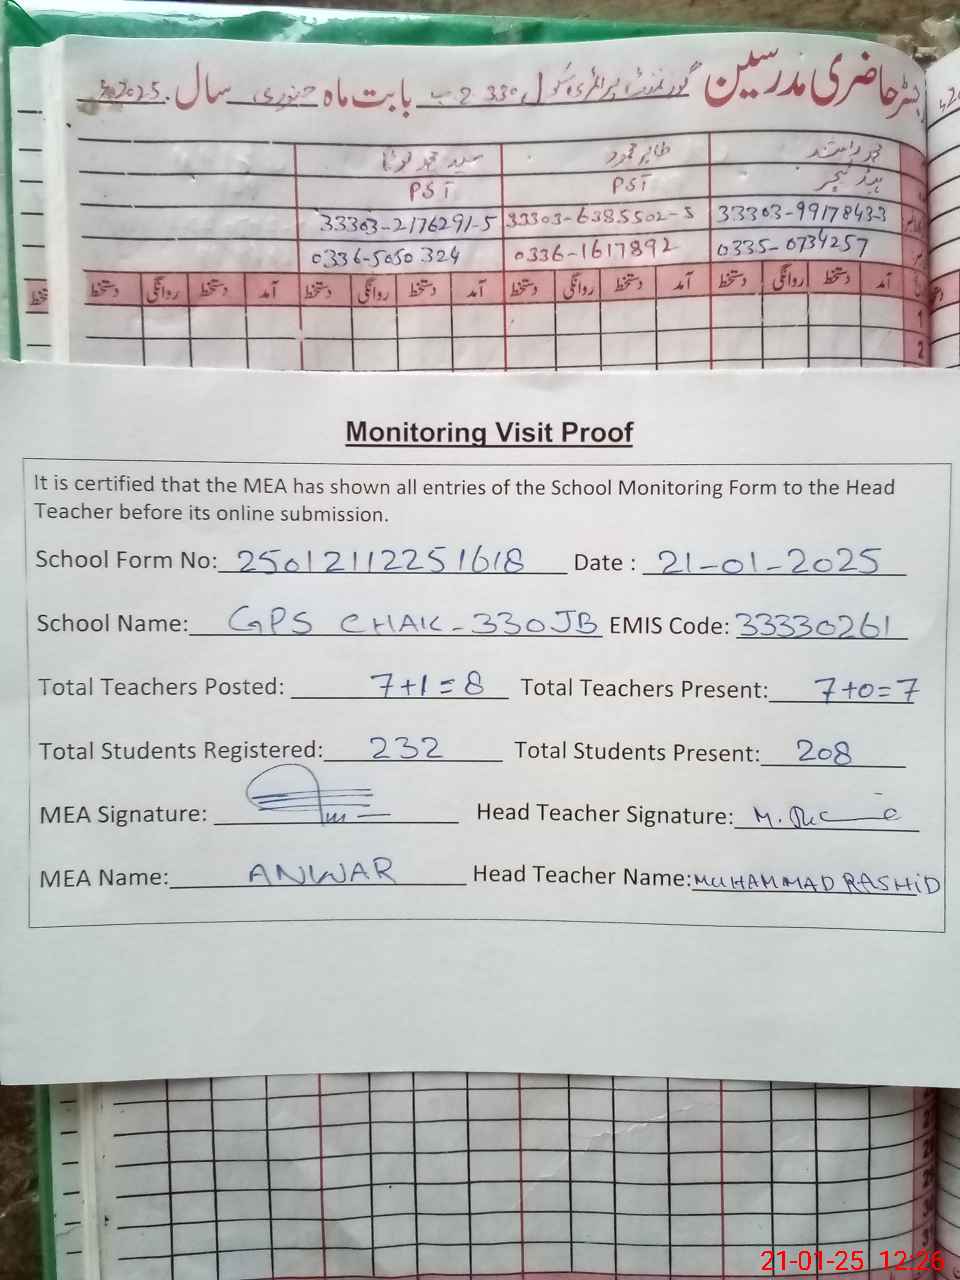 رجسٹر حاضری مدرسین گورنمنٹ پرائمری سکول 330 ج ب بابت ماہ جنوری سال 2025ء
محمد راشد طاہر محمود سید محمد
ہیڈ ٹیچر PST PST
33303-9917843-3 33303-6385502-5 33303-2176291-5
0335-0734257 0336-1617892 0336-5050324
آمد دستخط روانگی دستخط آمد دستخط روانگی دستخط آمد دستخط روانگی دستخط آمد دستخط روانگی دستخط
1
2
Monitoring Visit Proof
It is certified that the MEA has shown all entries of the School Monitoring Form to the Head
Teacher before its online submission.
School Form No: 25012112251618 Date : 21-01-2025
School Name: GPS CHAK-330JB EMIS Code: 33330261
Total Teachers Posted: 7+1=8 Total Teachers Present: 7+0=7
Total Students Registered: 232 Total Students Present: 208
MEA Signature: Head Teacher Signature: M.
MEA Name: ANWAR Head Teacher Name: MUHAMMAD RASHiD
21-01-25 12:26